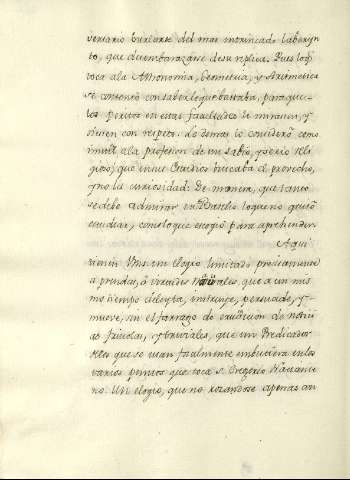 versario burlarse del mas intrincado laberyn
to, que desembarazarse de su replica. Pues lo q̃
toca ala Astronomia, Geometria, y Aritmetica
se contentò con saber lo que bastaba, para que
los peritos en estas facultades le mirasen, y
oiesen con respeto. Lo demas lo considerò como
inutil ala profesion de un sabio, y serio Reli
gioso, que en sus estudios buscaba el provecho,
y no la curiosidad. De manera, que tanto
se debe admirar en Basilio lo que no quiso
estudiar, como lo que escogiò para aprehender.
Aqui
tienen Vms. un elogio limitado precisamente
a prendas, ò virtudes naturales, que a un mis
mo tiempo deleyta, instruye, persuade, y
mueve, sin el farrago de erudicion de noticias
frivolas, y triviales, que un Predicador
de los que se usan facilmente embutiera en los
varios puntos que toca S. Gregorio Nacianze
no. Un elogio, que no rozandose apenas an